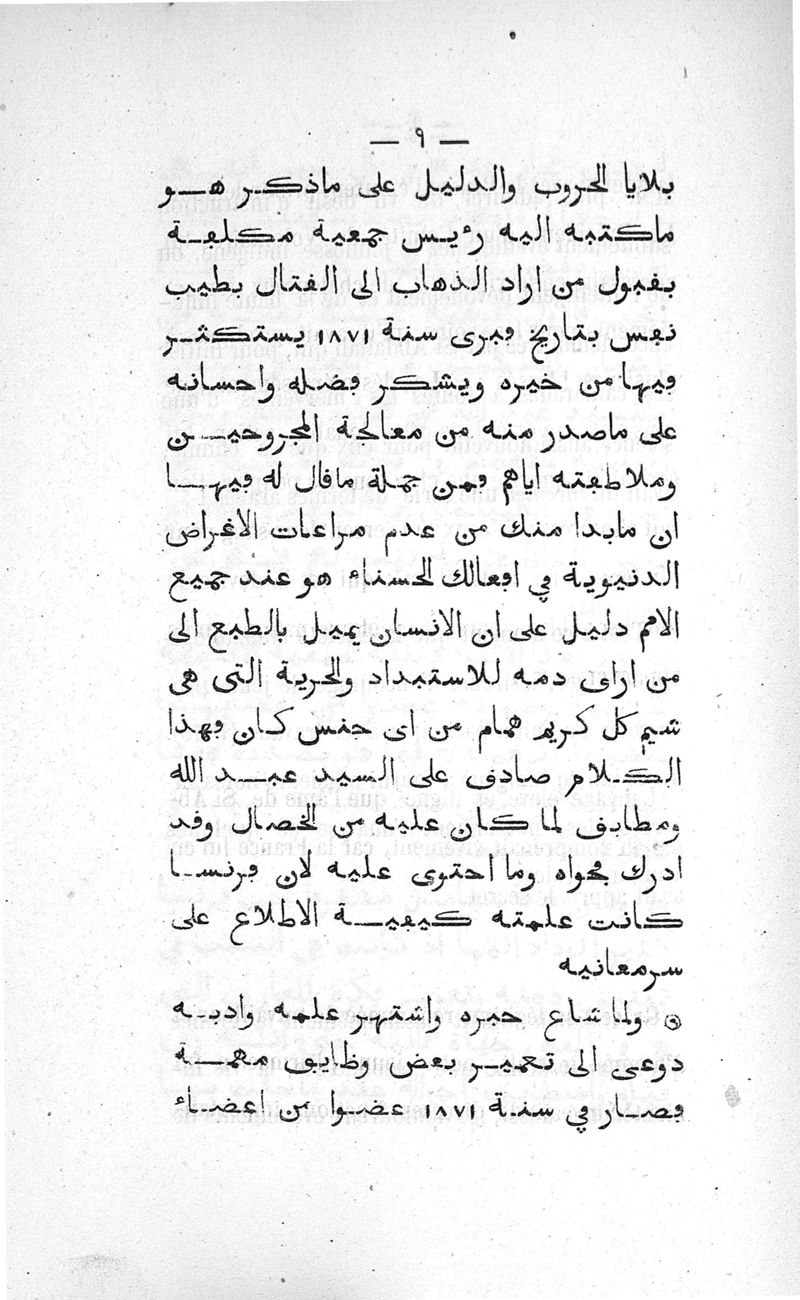 — ٩ —
بلايا الحروب والدليل على ماذكر هو
ماكتبه اليه رئيس جمعية مكلفة
بقبول من اراد الذهاب الى القتال بطيب
نفس بتاريخ فبرى سنة ١٨٧١ يستكثر
فيها من خيره ويشكر فضله واحسانه
على ماصدر منه من معالجة المجروحين
وملاطفته اياهم فمن جملة ماقال له فيها
ان مابدا منك من عدم مراعات الاغراض
الدنيوية في افعالك الحسناء هو عند جميع
الامم دليل على ان الانسان يميل بالطبع الى
من اراى دمه للاستبداد والحرية التى هى
شيم كل كريم همام من اى جنس كان فهذا
الكلام صادق على السيد عبد الله
ومطابق لما كان عليه من الخصال وقد
ادرك فحواه وما احتوى عليه لان فرنسا
كانت علمته كيفية الاطلاع على
سرمعانيه
۞ ولما شاع خبره واشتهر علمه وادبه
دوعى الى تعمير بعض وظايف مهمة
فصار في سنة ١٨٧١ عضوا من اعضاء